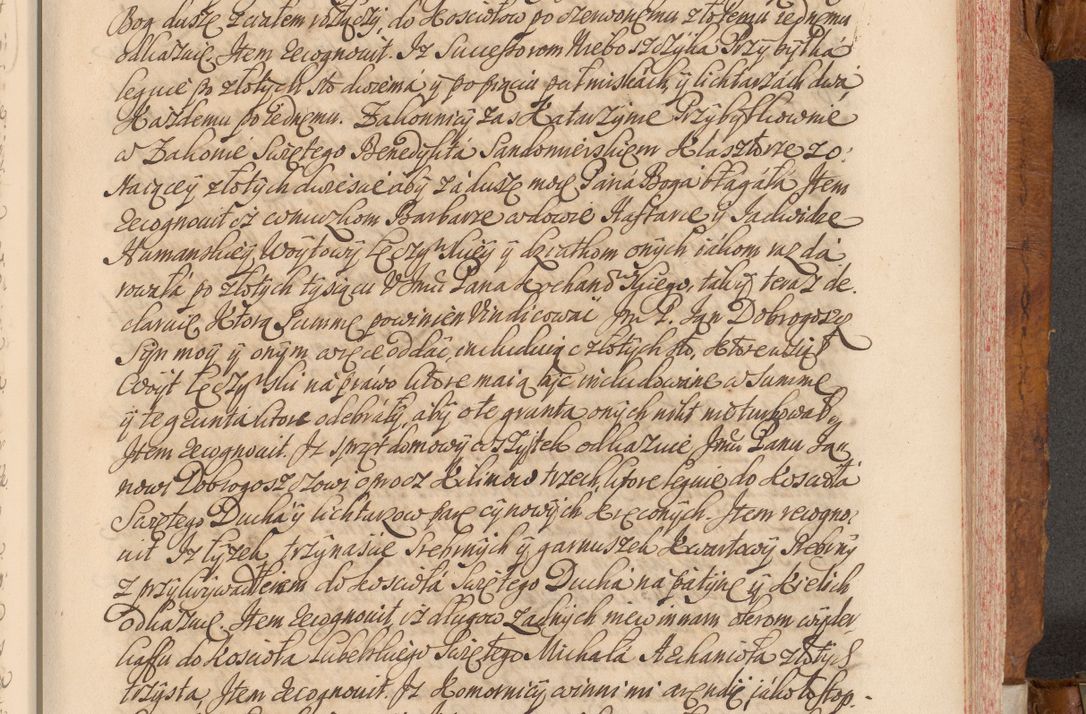 Bog duszę z ciałem rozłączy, do Kosciołow po czerwonemu złotemu iednemu
odkazuie. Item recognovit. Iz Sucessorom Nieboszczyka Przybyłka
leguie po złotych sto dwiema y po pięciu pułmiskach, y lichtarzach dwa
Każdemu po iednemu. Zakonnicy zas Katarzynie Przybyłkownie
w Zakonie Swiętego Benedykta Sandomierskiem Klasztorze zo:
staiącey złotych dwiescie aby zá duszę moię Paná Boga błagáłá Item
recognovit iż comuzkom Barbarze wdowie Kaftarce y Jadwidze
Humanskiey, Woytowy Łęczynskiey y dziatkom onych iákom raz dá
rowáła po złotych tysiącu U Jmci Pana Kochanowskiego, tak y teraz de:
claruię Ktorą Summę powinien Vindicować Jm P. Jan Dobrogoszcz
Syn moy y onym więcie oddać, includuiąc złotych sto, ktore wziął
Woyt Łęczynski na práwo ktore maią byc includowane w Summę
y te grunta ktore odebráły, aby o te grunta onych nikt nie turbował
Item recognovit. Iz sprzęt domowy wszystek odkazuie Jmci Panu Ja:
nowi Dobrogoszczowi oprocz Kilimow trzech, ktore leguie do Koscioła
Swiętego Ducha y lichtarzow parę cynowych kręconych. Item recogno:
vit Iz łyzek trzynascie srebrnych y garnuszek kwartowy srebrny
z przykrywadłem do koscioła Swiętego Ducha na patynę y Kielich
odkazuię. Item recognovit iż długow zadnych niewinnam oterom wyder
kaffu do koscioła Lubelskiego Swiętego Michałá Archanioła złotych
trzysta, Item recognovit. Iz Komornicy winni mi arendę jako to stop: